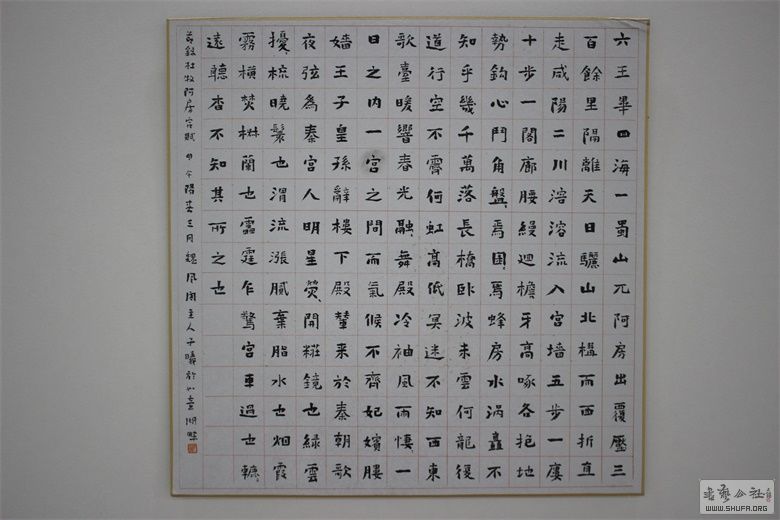 六王畢四海一蜀山兀阿房出覆壓三
百餘里隔離天日驪山北構而西折直
走咸陽二川溶溶流入宮墻五步一廔
十步一閣廊腰縵迴檐牙高啄各抱地
勢鈎心鬥角盤、焉囷、焉蜂房水渦矗不
知乎幾千萬落長橋臥波未雲何龍復
道行空不霽何虹高低冥迷不知西東
歌臺暖響春光融、舞殿冷袖風雨悽、一
日之内一宮之間而氣候不齊妃嬪媵
嬙王子皇孫辭樓下殿輦来於秦朝歌
夜弦為秦宮人明星熒、開粧鏡也緑雲
擾、梳曉鬟也渭流漲膩棄脂水也烟霞
霧橫焚椒蘭也雷霆乍驚宮車過也轆、
遠聽杳不知其所之也
杜牧阿房宮賦 陽春三月 魏風閣主人子曦於 湖畔
書藝公社
WWW.SHUFA.ORG